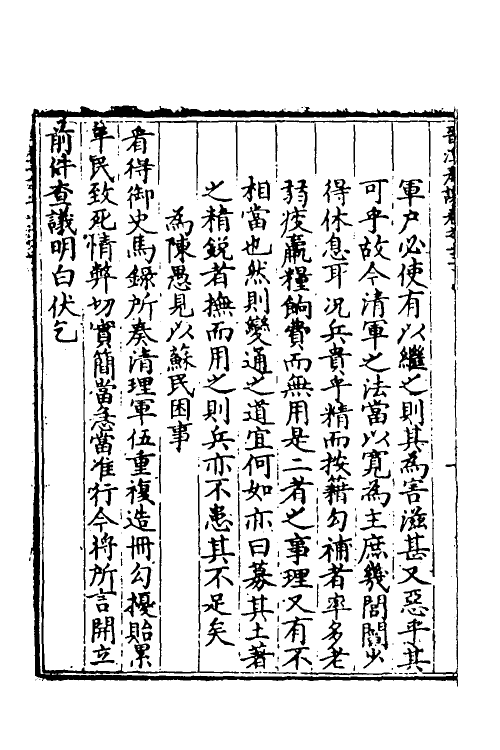 軍戶必使有以繼之則其為害滋甚又惡乎其
可乎故今清軍之法當以寬為主庶幾閭閻少
得休息耳况兵貴乎精而按籍勾補者率多老
弱疲羸糧餉費而無用是二者之事理又有不
相當也然則變通之道宜何如亦曰募其土著
之精銳者撫而用之則兵亦不患其不足矣
為陳愚見以蘇民困事
看得御史馬錄所奏清理軍伍重複造冊勾擾貽累
軍民致死情弊切實簡當急當准行今將所言開立
前件查議明白伏乞